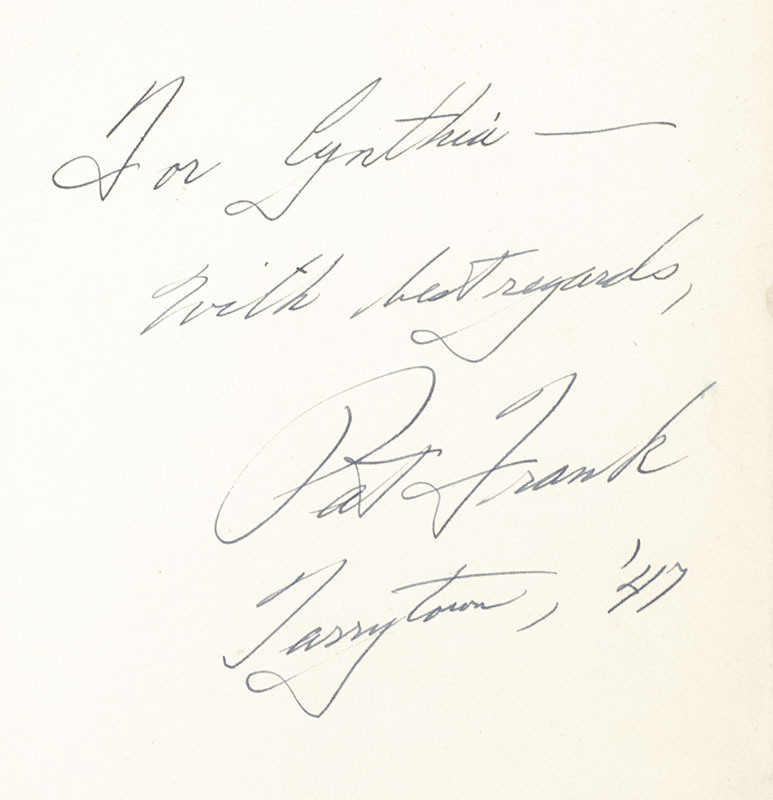 For Cynthia —
With best regards,
Pat Frank
Tarrytown, '47